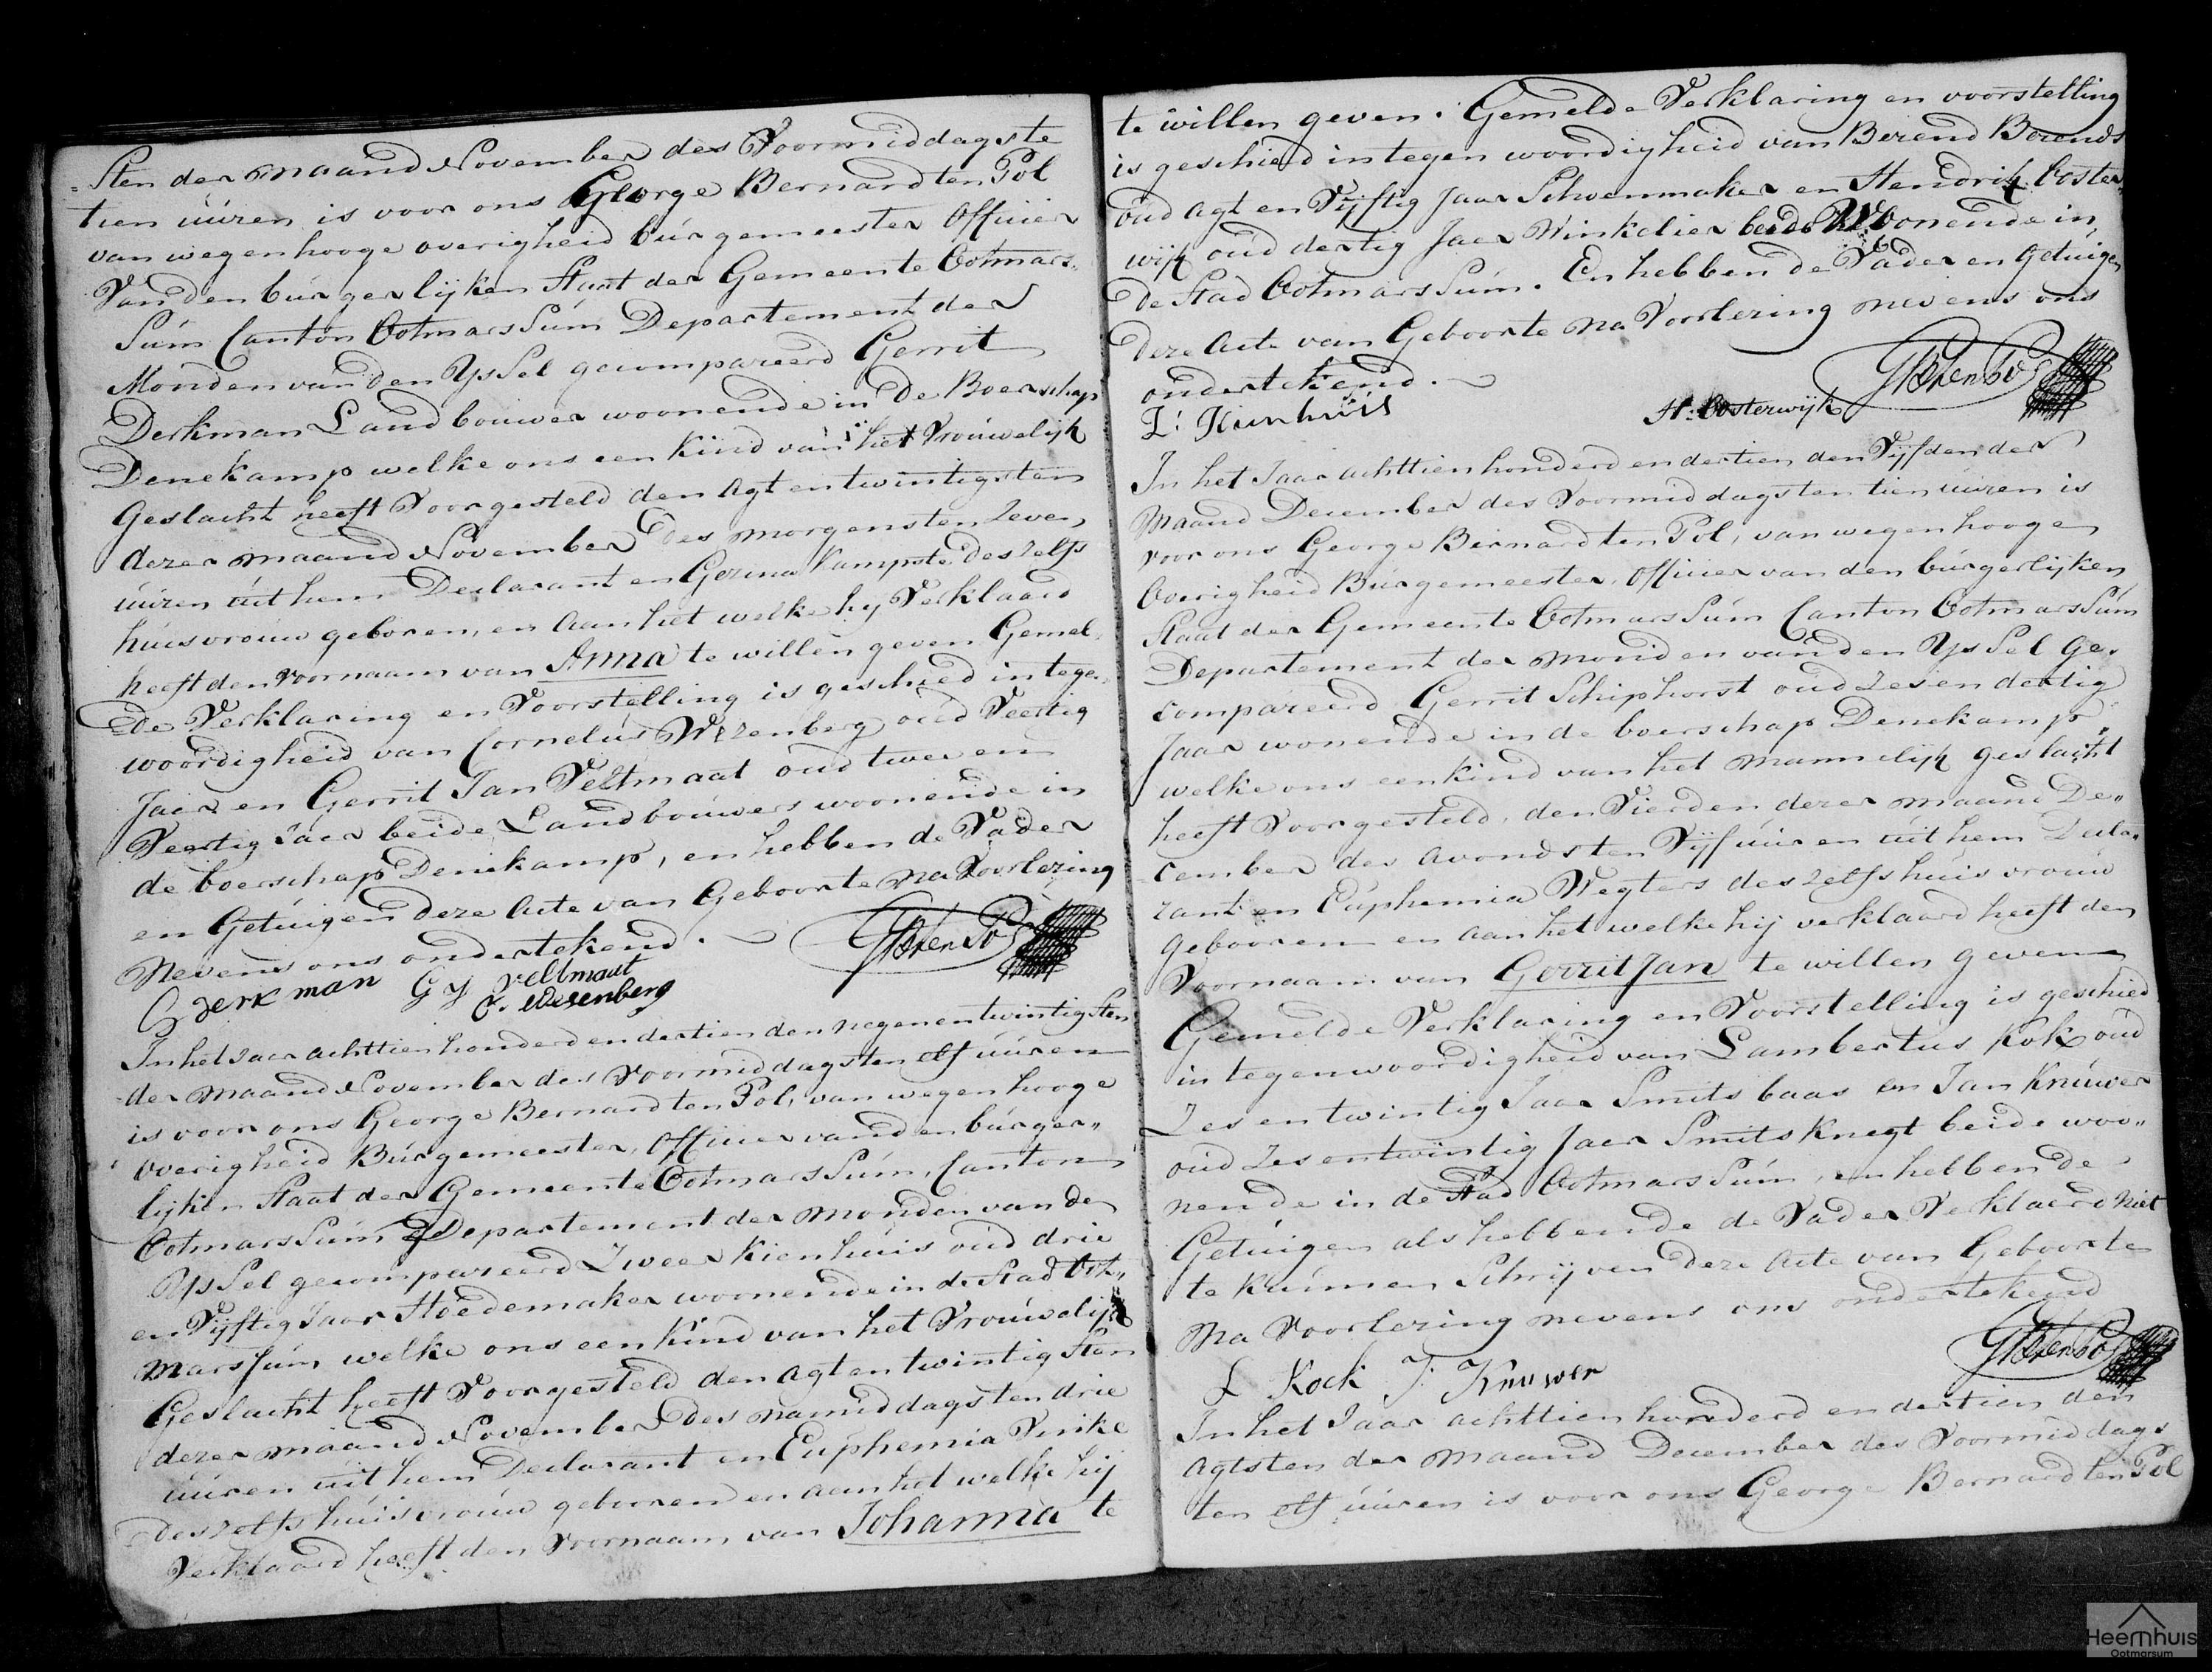 =sten der maand November des Voormiddags te
tien úúren is voor ons George Bernard ten Pol
van wegen hooge overigheid búrgemeester Officier
Van den búrgerlijken Staat der Gemeente Ootmars„
súm Canton Ootmarssúm Departement der
Monden van den Yssel gecompareerd Gerrit
Derkman Landbouwer woonende in De Boerschap
Denekamp welke ons een kind van het Vrouwelijk
Geslacht heeft Voorgesteld den Agt en twintigsten
dezer maand November Des morgens ten Zeven
úúren úit hem Declarant en Gezina Kampste deszelfs
húisvrouw geboren, en Aan het welke hy Verklaard
heeft den voornaam van Anna te willen geven Gemel„
De Verklaring en Voorstelling is geschied in tege„
woordigheid van Cornelús Wezenberg oúd Veertig
Jaer en Gerrit Jan Veltmaat oud twee en
Veertig Jaer beide Landbouwers woonende in
de boerschap Denekamp, en hebben de Vader
en Getúigen deze Acte van Geboorte na Voorlezing
Nevens ons ondertekend.
GBtenPol
G Derkman G J Veltmaat
C. Wesenberg
In het Jaer achttien honderd en dertien den negen en twintigsten
der maand November des Voormiddags ten elf úúren
is voor ons George Bernard ten Pol, van wegen hooge
Overigheid Búrgemeester, Officier van den búrger„
lijken Staat der Gemeente Ootmarssúm, Canton
Ootmarssúm Departement der monden van den
Yssel gecompareerd Zweer Kienhúis oúd drie
en Vijftig Jaar Hoedemaker woonende in de Stad Oot„
marssúm, welke ons een kind van het Vrouwelijk
Geslacht heeft Voorgesteld den Agt en twintigsten
dezer maand November des namiddags ten drie
úúren úit hem Declarant en Eúphemia Vinke
deszelfs húisvrouw gebooren en aan het welke hij
Verklaard heeft den Voornaam van Johanna te
te willen geven. Gemelde Verklaring en voorstelling
is geschied in tegenwoordigheid van Berend Berends
oúd Agt en Vijftig Jaar Schoenmaker en Hendrik Ooster„
wijk oúd dertig Jaer Winkelier beide Woonende in
De Stad Ootmarssúm. En hebben de Vader en Getuigen
Deze Acte van Geboorte na Voorlezing nevens ons
ondertekend.
GBtenPol
Z: Kienhuis H: Oosterwijk
In het Jaar achttien honderd en dertien den Vijfden der
Maand December des Voormiddags ten tien úúren is
voor ons George Bernard ten Pol, van wegen hooge
Overigheid Búrgemeester, Officier van den búrgerlijken
Staat der Gemeente Ootmarssúm Canton Ootmarssúm
Departement der monden van den Yssel ge„
compareerd Gerrit Schiphorst oúd Zes en dertig
Jaar wonende in de boerschap Denekamp,
welke ons een kind van het mannelijk geslacht
heeft Voorgesteld, den Vierden dezer maand De„
cember des Avonds ten Vijf úúren úit hem Decla„
rant en Eúphemia Wegters deszelfs húisvrouw
gebooren en aan het welke hij verklaard heeft den
Voornaam van Gerrit Jan te willen geven
Gemelde Verklaring en Voorstelling is geschied
in tegenwoordigheid van Lambertús Kok oúd
Zes en twintig Jaar Smits baas en Jan Knúwer
oúd Zes en twintig Jaer Smits Knegt beide woo„
nende in de Stad Ootmarssúm, en hebben de
Getuigen als hebbende de Vader Verklaerd niet
te kúnnen Schrijven deze Acte van Geboorte
Na Voorlezing nevens ons ondertekend
GBtenPol
L Kock J: Knuwer
In het Jaar achttien honderd en dertien den
Agtsten der maand December des Voormiddags
ten elf úúren is voor ons George Bernard ten Pol
Heemhuis
Ootmarsum